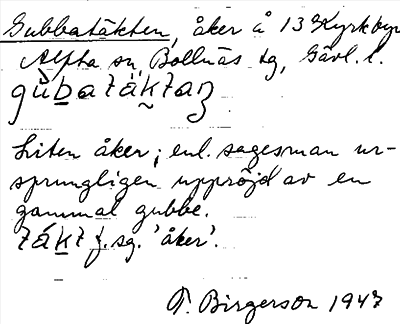 Gubbatäkten, åker å 13 Kyrkbyn
Alfta sn, Bollnäs tg, Gävl. l.
Liten åker; enl. sagesman ur-
sprungligen uppröjd av en
gammal gubbe.
f. sg. 'åker'.
T. Birgerson 1947